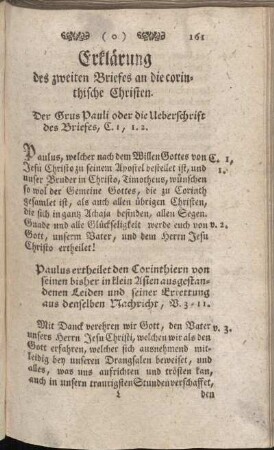 ( o ) 161
Erklärung
des zweiten Briefes an die corin-
thische Christen.
Der Grus Pauli oder die Ueberschrift
des Briefes, C. 1, 1. 2.
Paulus, welcher nach dem Willen Gottes von C. 1,
Jesu Christo zu seinem Apostel bestellet ist, und 1.
unser Bruder in Christo, Timotheus, wünschen
so wol der Gemeine Gottes, die zu Corinth
gesamlet ist, als auch allen übrigen Christen,
die sich in gantz Achaja befinden, allen Segen.
Gnade und alle Glückseligkeit werde euch von v. 2.
Gott, unserm Vater, und dem Herrn Jesu
Christo ertheilet!
Paulus ertheilet den Corinthiern von
seinen bisher in klein Asien ausgestan-
denen Leiden und seiner Errettung
aus denselben Nachricht, V. 3-11.
Mit Danck verehren wir Gott, den Vater v. 3.
unsers Herrn Jesu Christi, welchen wir als den
Gott erfahren, welcher sich ausnehmend mit-
leidig bey unseren Drangsalen beweiset, und
alles, was uns aufrichten und trösten kan,
auch in unsern traurigsten Stunden verschaffet,
L den